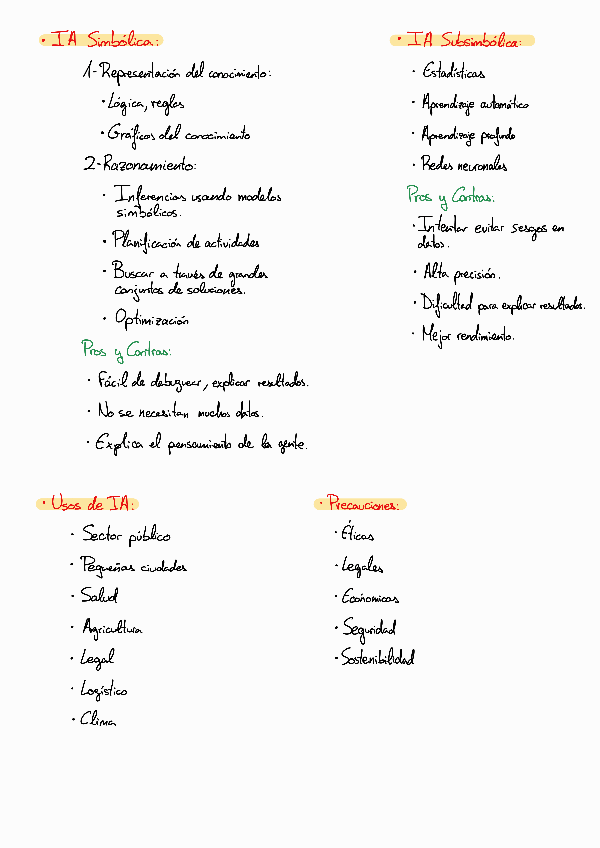 · IA Simbólica:
1-Representación del conocimiento:
· Lógica, reglas
· Gráficos del conocimiento
2-Razonamiento:
· Inferencias usando modelos
simbólicos.
· Planificación de actividades
· Buscar a través de grandes
conjuntos de soluciones.
· Optimización
Pros y Contras:
· Fácil de debuguear, explicar resultados.
· No se necesitan muchos datos.
· Explica el pensamiento de la gente.
· IA Subsimbólica:
· Estadísticas
· Aprendizaje automático
· Aprendizaje profundo
· Redes neuronales
Pros y Contras:
· Intentar evitar sesgos en
datos.
· Alta precisión.
· Dificultad para explicar resultados.
· Mejor rendimiento.
· Usos de IA:
· Sector público
· Pequeñas ciudades
· Salud
· Agricultura
· Legal
· Logístico
· Clima
· Precauciones:
· Éticas
· Legales
· Económicas
· Seguridad
· Sostenibilidad